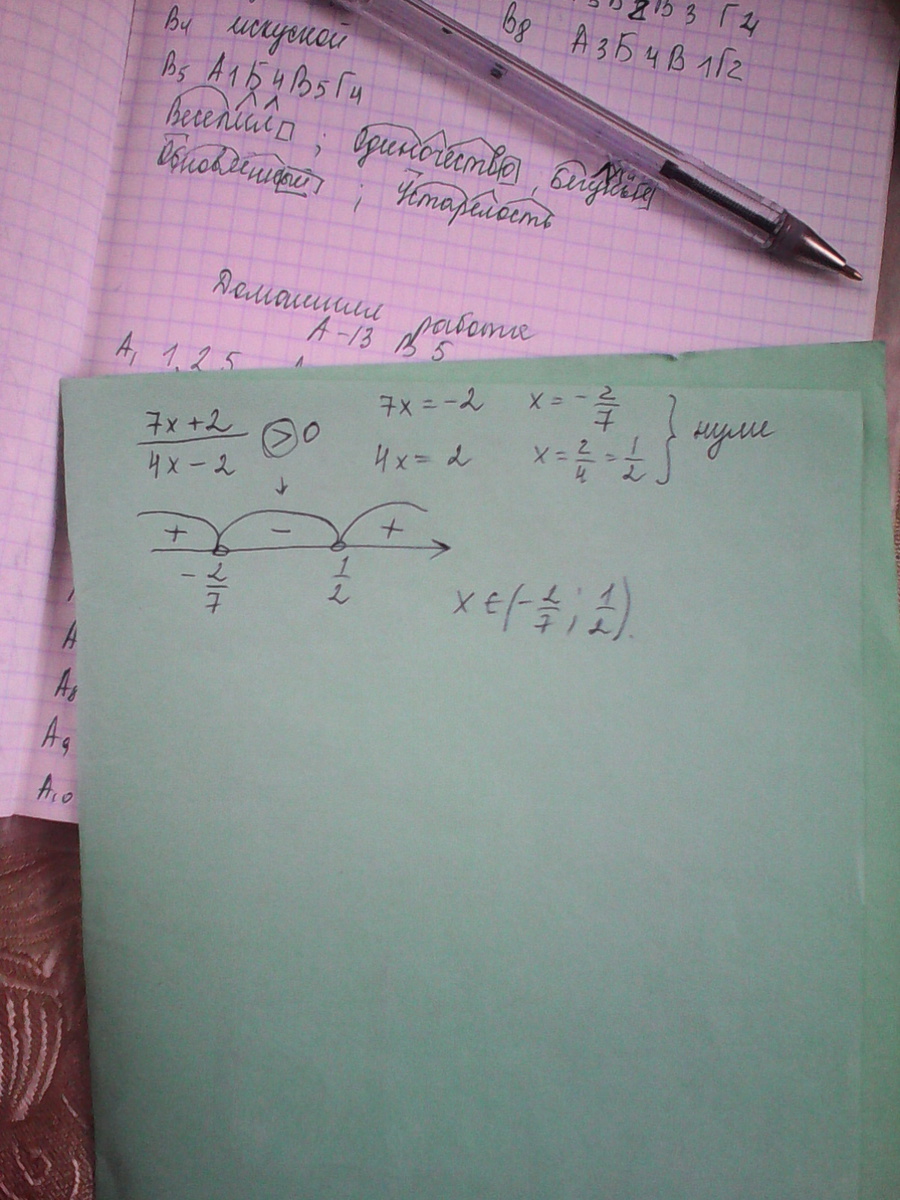 В4 искуской
В5 А1Б4В5Г4
В8 А3Б4В1Г2
Веселил ; Одиночество ,
Обновлённый ; Устарелость
Домашняя работа
А-13 В5
А1 1,2,5
(7x+2)/(4x-2) > 0
7x = -2 x = -2/7
4x = 2 x = 2/4 = 1/2 } нули
+ - +
-2/7 1/2
x ∈ (-2/7 ; 1/2).
А8
А9
А10